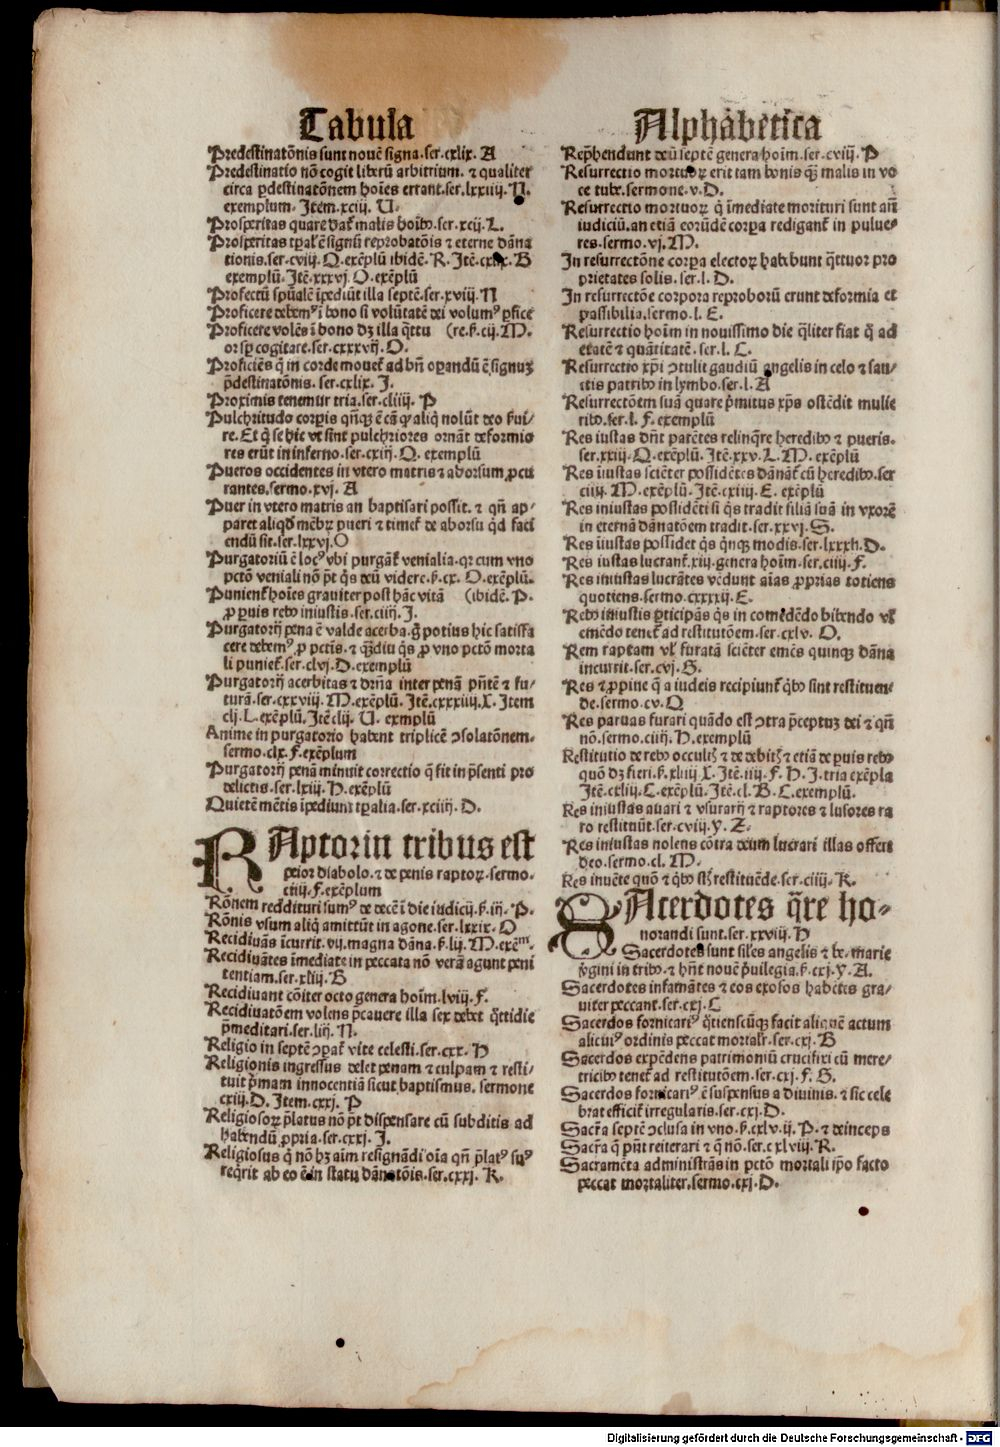 Tabula
Predestinatōnis sunt nouē signa.ser.cxlix. A
Predestinatio nō cogit liberū arbitrium. ⁊ qualiter
circa p̄destinatōnem hoīes errant.ser.lxxiiij. N.
exemplum. Item.xciij. U.
Prosperitas quare datur malis hoībꝰ.ser.xcij. L.
Prosperitas tp̄alꝭ ē signū reprobatōis ⁊ eterne dāna
tionis.ser.cviij. Q. exēplū ibidē. R. Itē. cxlix. B
exemplū. Itē.xxxvj. O. exēplū
Profectū spūalē īpediūt illa septē.ser.xviij. N
Proficere debemꝰ ī bono si volūtatē dei volumꝰ ꝑfice
Proficere volēs ī bono dꝫ illa q̄ttu (re.ẜ.cij. M.
or sꝑ cogitare.ser.cxxxvij. O.
Proficiēs q̄ in corde mouetʳ ad bn̄ oꝑandū ē signuꝫ
p̄destinatōnis. ser.cxlix. I.
Proximis tenemur tria.ser.cliiij. P
Pulchritudo corꝑis qn̄qꝫ ē cā ꝙ aliq̄ nolūt deo ẜui/
re. Et q̄ se hic vt sint pulchriores ornāt deformio
res erūt in inferno.ser.cxiij. Q. exemplū
Pueros occidentes in vtero matris ⁊ aborsum ꝓcu
rantes.sermo.xvj. A
Puer in vtero matris an baptisari possit. ⁊ qn̄ ap/
paret aliqd̄ mēbꝝ pueri ⁊ timetʳ de aborsu qd̄ faci
endū sit.ser.lxxvj. O
Purgatoriū ē locꝰ vbi purgātʳ venialia. qꝛ cum vno
pctō veniali nō pt̄ q̄s deū videre.ẜ.cx. O. exēplū.
Punientʳ hoīes grauiter post hāc vitā (ibidē. P.
ꝓ ꝑuis rebꝰ iniustis.ser.ciiij. I.
Purgatorij pena ē valde acerba. ḡ potius hic satisfa
cere debemꝰ ꝓ pctis. ⁊ qȝdiu q̄s ꝓ vno pctō morta
li punietʳ.ser.clvj. D. exemplū
Purgatorij acerbitas ⁊ dr̄na inter penā pn̄tē ⁊ fu/
turā.ser.cxxviij. M. exēplū. Itē.cxxxiiij. X. Item
clj. L. exēplū. Itē clij. U. exmplū
Anime in purgatorio habent triplicē ↄsolatōnem.
sermo.clx. F. exēplum
Purgatorij penā minuit correctio q̄ fit in p̄senti pro
delictis.ser.lxiij. H. exēplū
Quietē mētis īpediunt tp̄alia.ser.xciiij. D.
RAptorin tribus est
peior diabolo. ⁊ de penis raptoꝝ.sermo.
ciiij. F. exēplum
Rōnem reddituri sumꝰ de decē ī die iudicij.ẜ.iij. P.
Rōnis vsum aliq̄ amittūt in agone.ser.lxxix. O
Recidiuās īcurrit.vij. magna dāna.ẜ.lij. M. exēᵐ.
Recidiuātes īmediate in peccata nō verā agunt peni
tentiam.ser.xliij. B
Recidiuant cōiter octo genera hoīm.lviij. F.
Recidiuatōem volens p̄cauere illa sex debet q̄ttidie
p̄meditari.ser.liij. N.
Religio in septē ↄꝑatʳ vite celesti.ser.cxx. H
Religionis ingressus delet penam ⁊ culpam ⁊ resti/
tuit p̄mam innocentiā sicut baptismus. sermone
cxiij. D. Item.cxxj. P
Religiosoꝝ p̄latus nō pt̄ dispensare cū subditis ad
habendū ꝓpria.ser.cxxj. I.
Religiosus q̄ nō hꝫ aīm resignādi oīa qn̄ p̄latꝰ suꝰ
req̄rit ab eo ē in statu dānatōis.ser.cxxj. K.
Alphabetica
Rep̄hendunt deū septē genera hoīm.ser.cviij. P
Resurrectio mortuoꝝ erit tam bonis qȝ malis in vo
ce tube.sermone.v. D.
Resurrectio mortuoꝝ q̄ īmediate morituri sunt an̄
iudiciū.an etiā eorūdē corꝑa redigantʳ in pulue/
res.sermo.vj. M.
In resurrectōne corꝑa electoꝝ habebunt q̄ttuor pro
prietates solis. ser.l. D.
In resurrectōe corpora reproborū erunt deformia et
passibilia.sermo.l. E.
Resurrectio hoīm in nouissimo die q̄liter fiat q̄ ad
etatē ⁊ quātitatē. ser.l. C.
Resurrectio xp̄i ↄtulit gaudiū angelis in celo ⁊ san/
ctis patribꝰ in lymbo.ser.l. A
Resurrectōem suā quare p̄mitus xp̄s ostēdit mulie
ribꝰ.ser.l. F. exemplū
Res iustas dn̄t parētes relinq̄re heredibꝰ ⁊ pueris.
ser.xxiij. Q. exēplū. Itē.xxv. L. M. exēplū
Res iīustas sciēter possidētes dānātʳ cū heredibꝰ.ser
ciiij. M. exēplū. Itē.cxiiij. E. exēplū
Res iniustas possidēti si q̄s tradit filiā suā in vxorē
in eternā dānatōem tradit.ser.xxvj. S.
Res iīustas possidet q̄s q̄nqꝫ modis.ser.lxxxij. D.
Res iustas lucrantʳ.xij. genera hoīm.ser.ciiij. F.
Res iniustas lucrātes vēdunt aīas ꝓprias totiens
quotiens.sermo.cxxxxij. E.
Rebꝰ iniustis ꝑticipās q̄s in comedēdo bibendo vl̄
emēdo tenetʳ ad restitutōem.ser.cxlv. O.
Rem raptam vl̄ furatā sciēter emēs quinqꝫ dāna
incurrit.ser.cvj. S.
Res ⁊ ꝓpine q̄ a iudeis recipiuntʳ q̄bꝰ sint restituen/
de.sermo.cv. Q
Res paruas furari quādo est ↄtra p̄ceptuꝫ dei ⁊ qn̄
nō.sermo.ciiij. H. exemplū
Restitutio de rebꝰ occultꝭ ⁊ de debitꝭ ⁊ etiā de ꝑuis rebꝰ
quō dꝫ fieri.ẜ.xliiij. X. Itē.iij. F. H. I. tria exēpla
Itē.cxlij. C. exēplū. Itē.cl. B. C. exemplū.
Res iniustas auari ⁊ vsurarij ⁊ raptores ⁊ lusores ra
ro restituūt.ser.cviij. Y. Z.
Res iniustas nolens cōtra deum lucrari illas offert
deo.sermo.cl. M.
Res inuēte quō ⁊ q̄bꝰ st̄ restituēde.ser.ciiij. K.
SAcerdotes q̄re ho-
norandi sunt.ser.xxviij. H
Sacerdotes sunt siles angelis ⁊ be. marie
v̄gini in tribꝰ ⁊ hn̄t nouē p̄uilegia.ẜ.cxj. Y. A.
Sacerdotes infamātes ⁊ eos exosos habētes gra/
uiter peccant.ser.cxj. C
Sacerdos fornicariꝰ q̄tienscūqꝫ facit aliquē actum
alicuiꝰ ordinis peccat mortalr̄.ser.cxj. B
Sacerdos expēdens patrimoniū crucifixi cū mere/
tricibꝰ tenetʳ ad restitutōem.ser.cxj. F. G.
Sacerdos fornicariꝰ ē suspensus a diuinis. ⁊ sic cele
brat efficitʳ irregularis.ser.cxj. D.
Sacr̄a septē ↄclusa in vno.ẜ.cxlv.ij. P. ⁊ deinceps
Sacr̄a q̄ pn̄t reiterari ⁊ q̄ nō.ser.cxlviij. R.
Sacramēta administrās in pctō mortali ip̄o facto
peccat mortaliter.sermo.cxj. D.
Digitalisierung gefördert durch die Deutsche Forschungsgemeinschaft - DFG